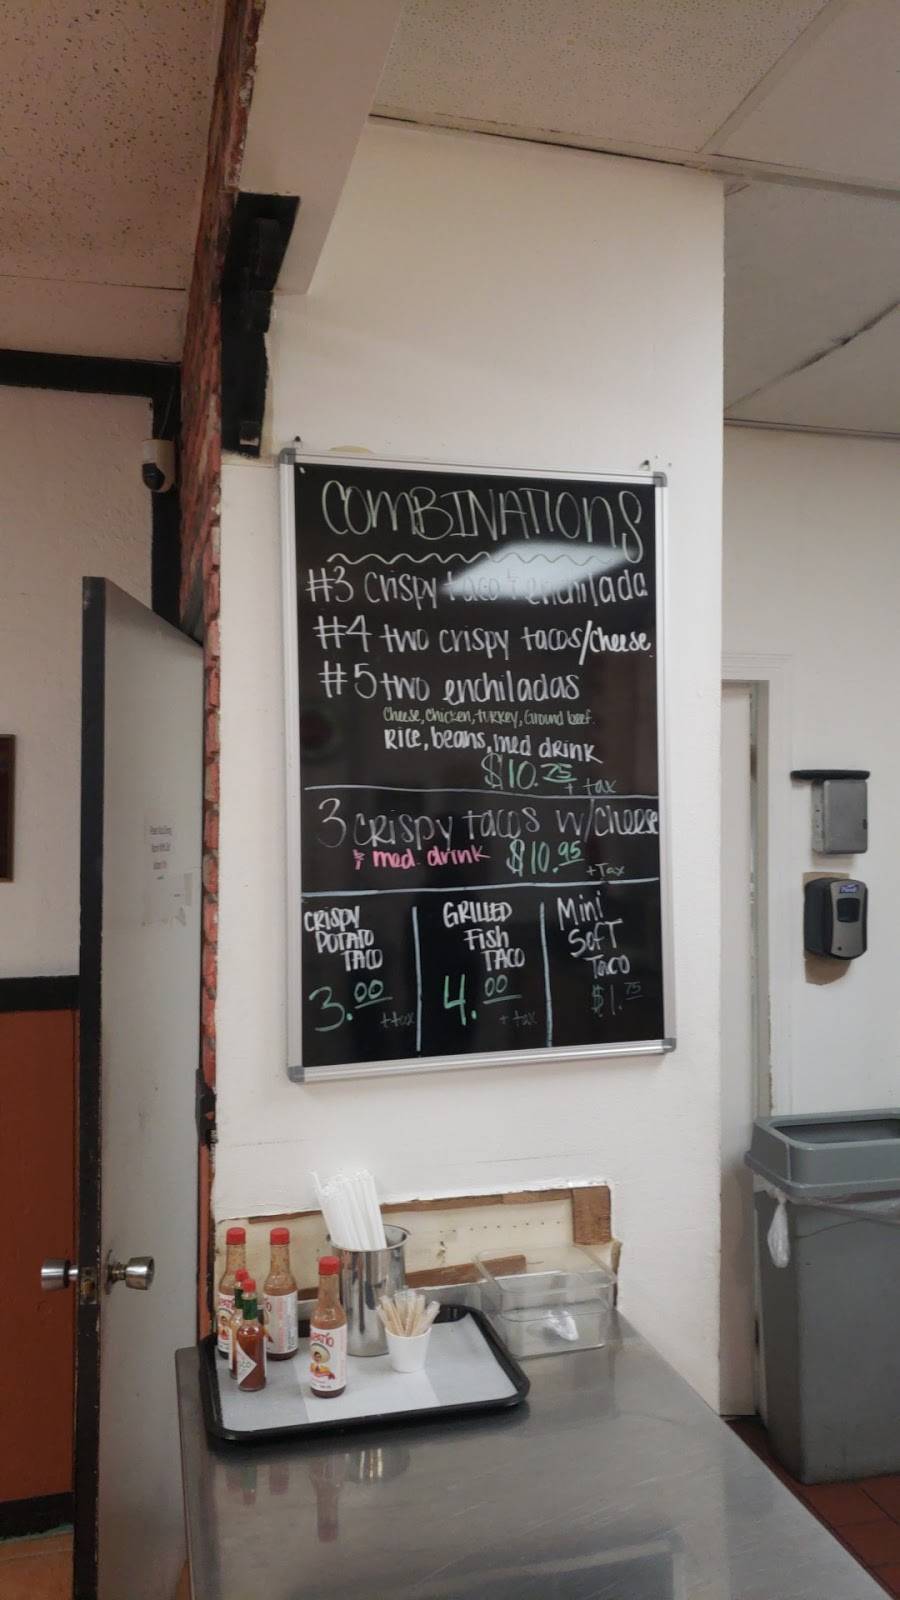 COMBINATIONS
#3 crispy taco & enchilada
#4 two crispy tacos/cheese
#5 two enchiladas
cheese, chicken, turkey, Ground beef.
Rice, beans, med drink
$10.75 + tax
3 CRISPY tacos w/cheese
& med. drink $10.95 +Tax
CRISPY POTATO TACO
3.00 + tax
GRILLED Fish TACO
4.00 + tax
Mini Soft Taco
$1.75